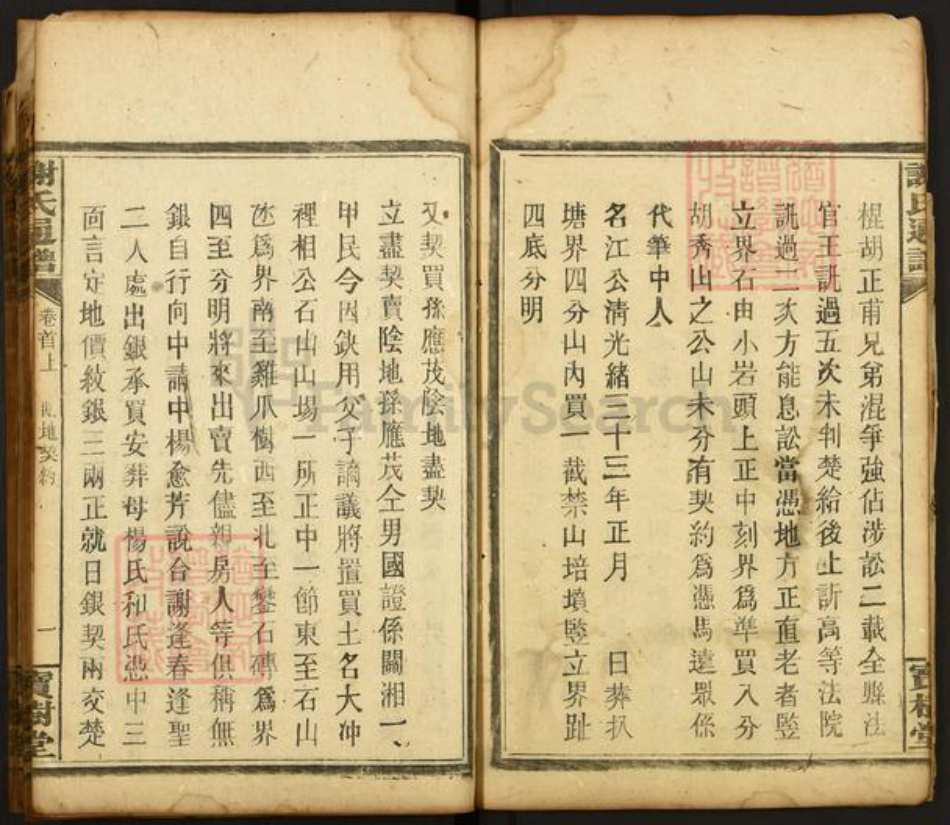 棍胡正甫兄弟混爭強佔涉訟二載全縣法
官王訊過五次未判楚給後上訴高等法院
訊過二次方能息訟當憑地方正直老者竪
立界石由小岩頭上正中刻界爲準買入分
胡秀山之公山未分有契約爲憑馬達眾係
代華中人
名江公清光緒三十三年正月 日葬扒
塘界四分山內買一截禁山培墳竪立界趾
四底分明
又契買孫應茂陰地盡契
立盡契賣陰地孫應茂仝男國證係關湘一、
甲民今因缺用父子謫議將置買土名大冲
裡相公石山山場一所正中一節東至石山
為界南至雞爪樹西至北至 石磚爲界
四至分明將來出賣先儘親房人等俱稱無
銀自行向中請中楊愈芳說台謝逢春逢聖
二人處出銀承買安葬母楊氏和氏憑中三
面言定地價紋銀三兩正就日銀契兩交楚
謝氏通譜
卷首上
契約
一
寶樹堂
謝氏通譜
寶樹堂
FamilySearch